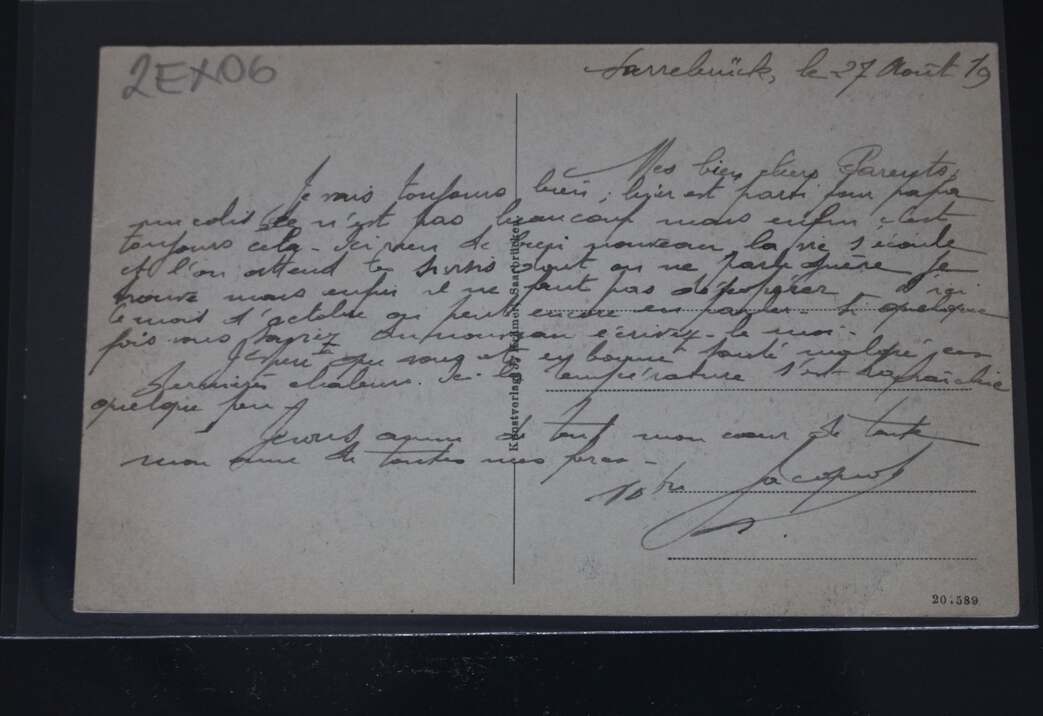 2EX06
Sarrebrück, le 27 Août 19
Mes bien chers Parents,
Je vais toujours bien, hier est parti pour papa
un colis. Ce n'est pas beaucoup mais enfin c'est
toujours cela. Ici rien de bien nouveau la vie s'écoule
et l'on attend le sursis dont on ne parle guère. Je
trouve mais enfin il ne faut pas désespérer
le mois d'octobre on peut encore en parler. Si quelque
fois vous du nouveau écrivez-le moi.
que vous êtes en bonne santé malgré ces
dernières chaleurs. Ici la température s'est rafraîchie
quelque peu.
Je vous aime de tout mon cœur de toute
mon âme de toutes mes forces.
Votre
Kunstverlag Saarbrücken
20.589